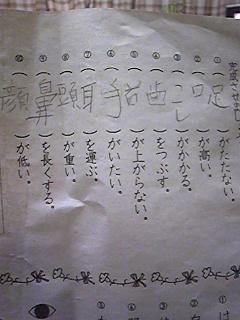 完成させまし
①（足）がたたない。
②（口）が高い。
③（こし）がかかる。
④（歯）をつぶす。
⑤（ ）が上がらない。
⑥（手）がいたい。
⑦（耳）を運ぶ。
⑧（頭）が重い。
⑨（鼻）を長くする。
⑩（顔）が低い。
① は
②
③
④
⑤